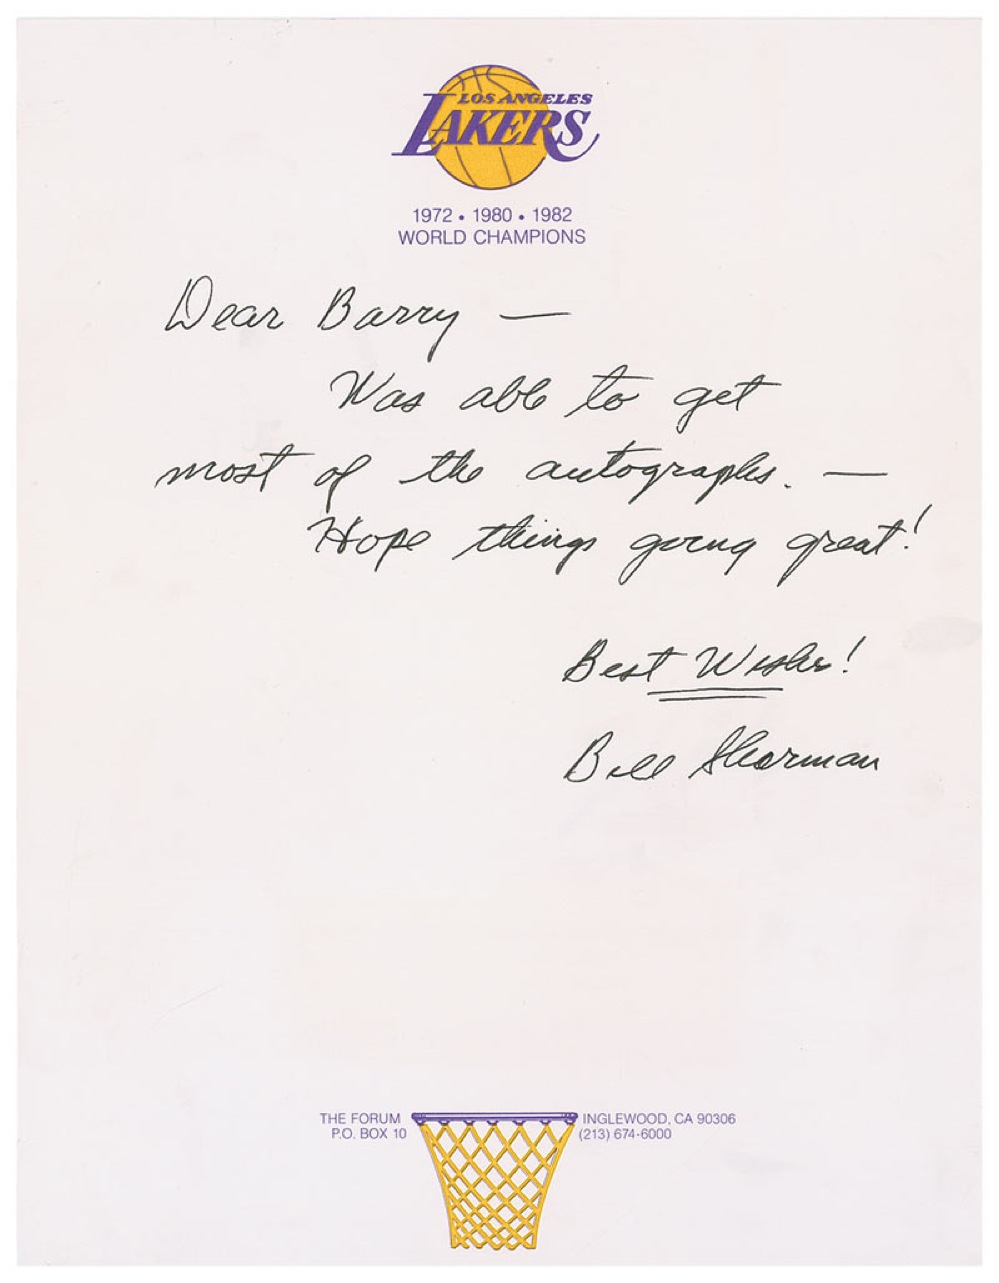 LOS ANGELES
LAKERS
1972 • 1980 • 1982
WORLD CHAMPIONS
Dear Barry —
Was able to get
most of the autographs. —
Hope things going great!
Best Wishes!
Bill Sharman
THE FORUM INGLEWOOD, CA 90306
P.O. BOX 10 (213) 674-6000